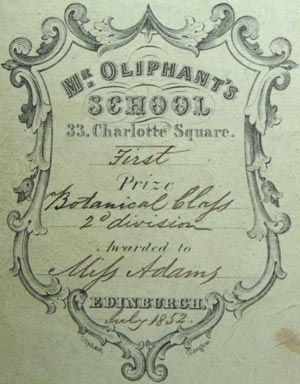 Mr. OLIPHANT'S
SCHOOL
33. Charlotte Square.
First
Prize
Botanical Class
2d division
Awarded to
Miss Adams
EDINBURGH.
July 1852.
Glasgow